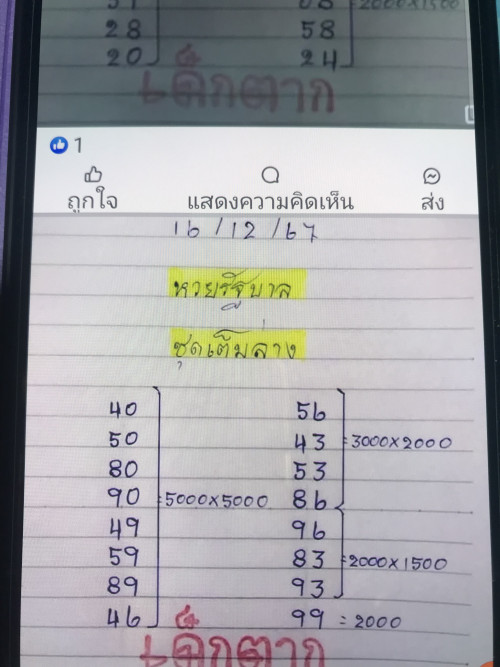 28 58
20 24
เด็กตาก
1
ถูกใจ แสดงความคิดเห็น ส่ง
16/12/67
หวยรัฐบาล
ชุดเต็มล่าง
40 56
50 43 =3000×2000
80 53
90 =5000×5000 86
49 96
59 83 =2000×1500
89 93
46 99 =2000
เด็กตาก